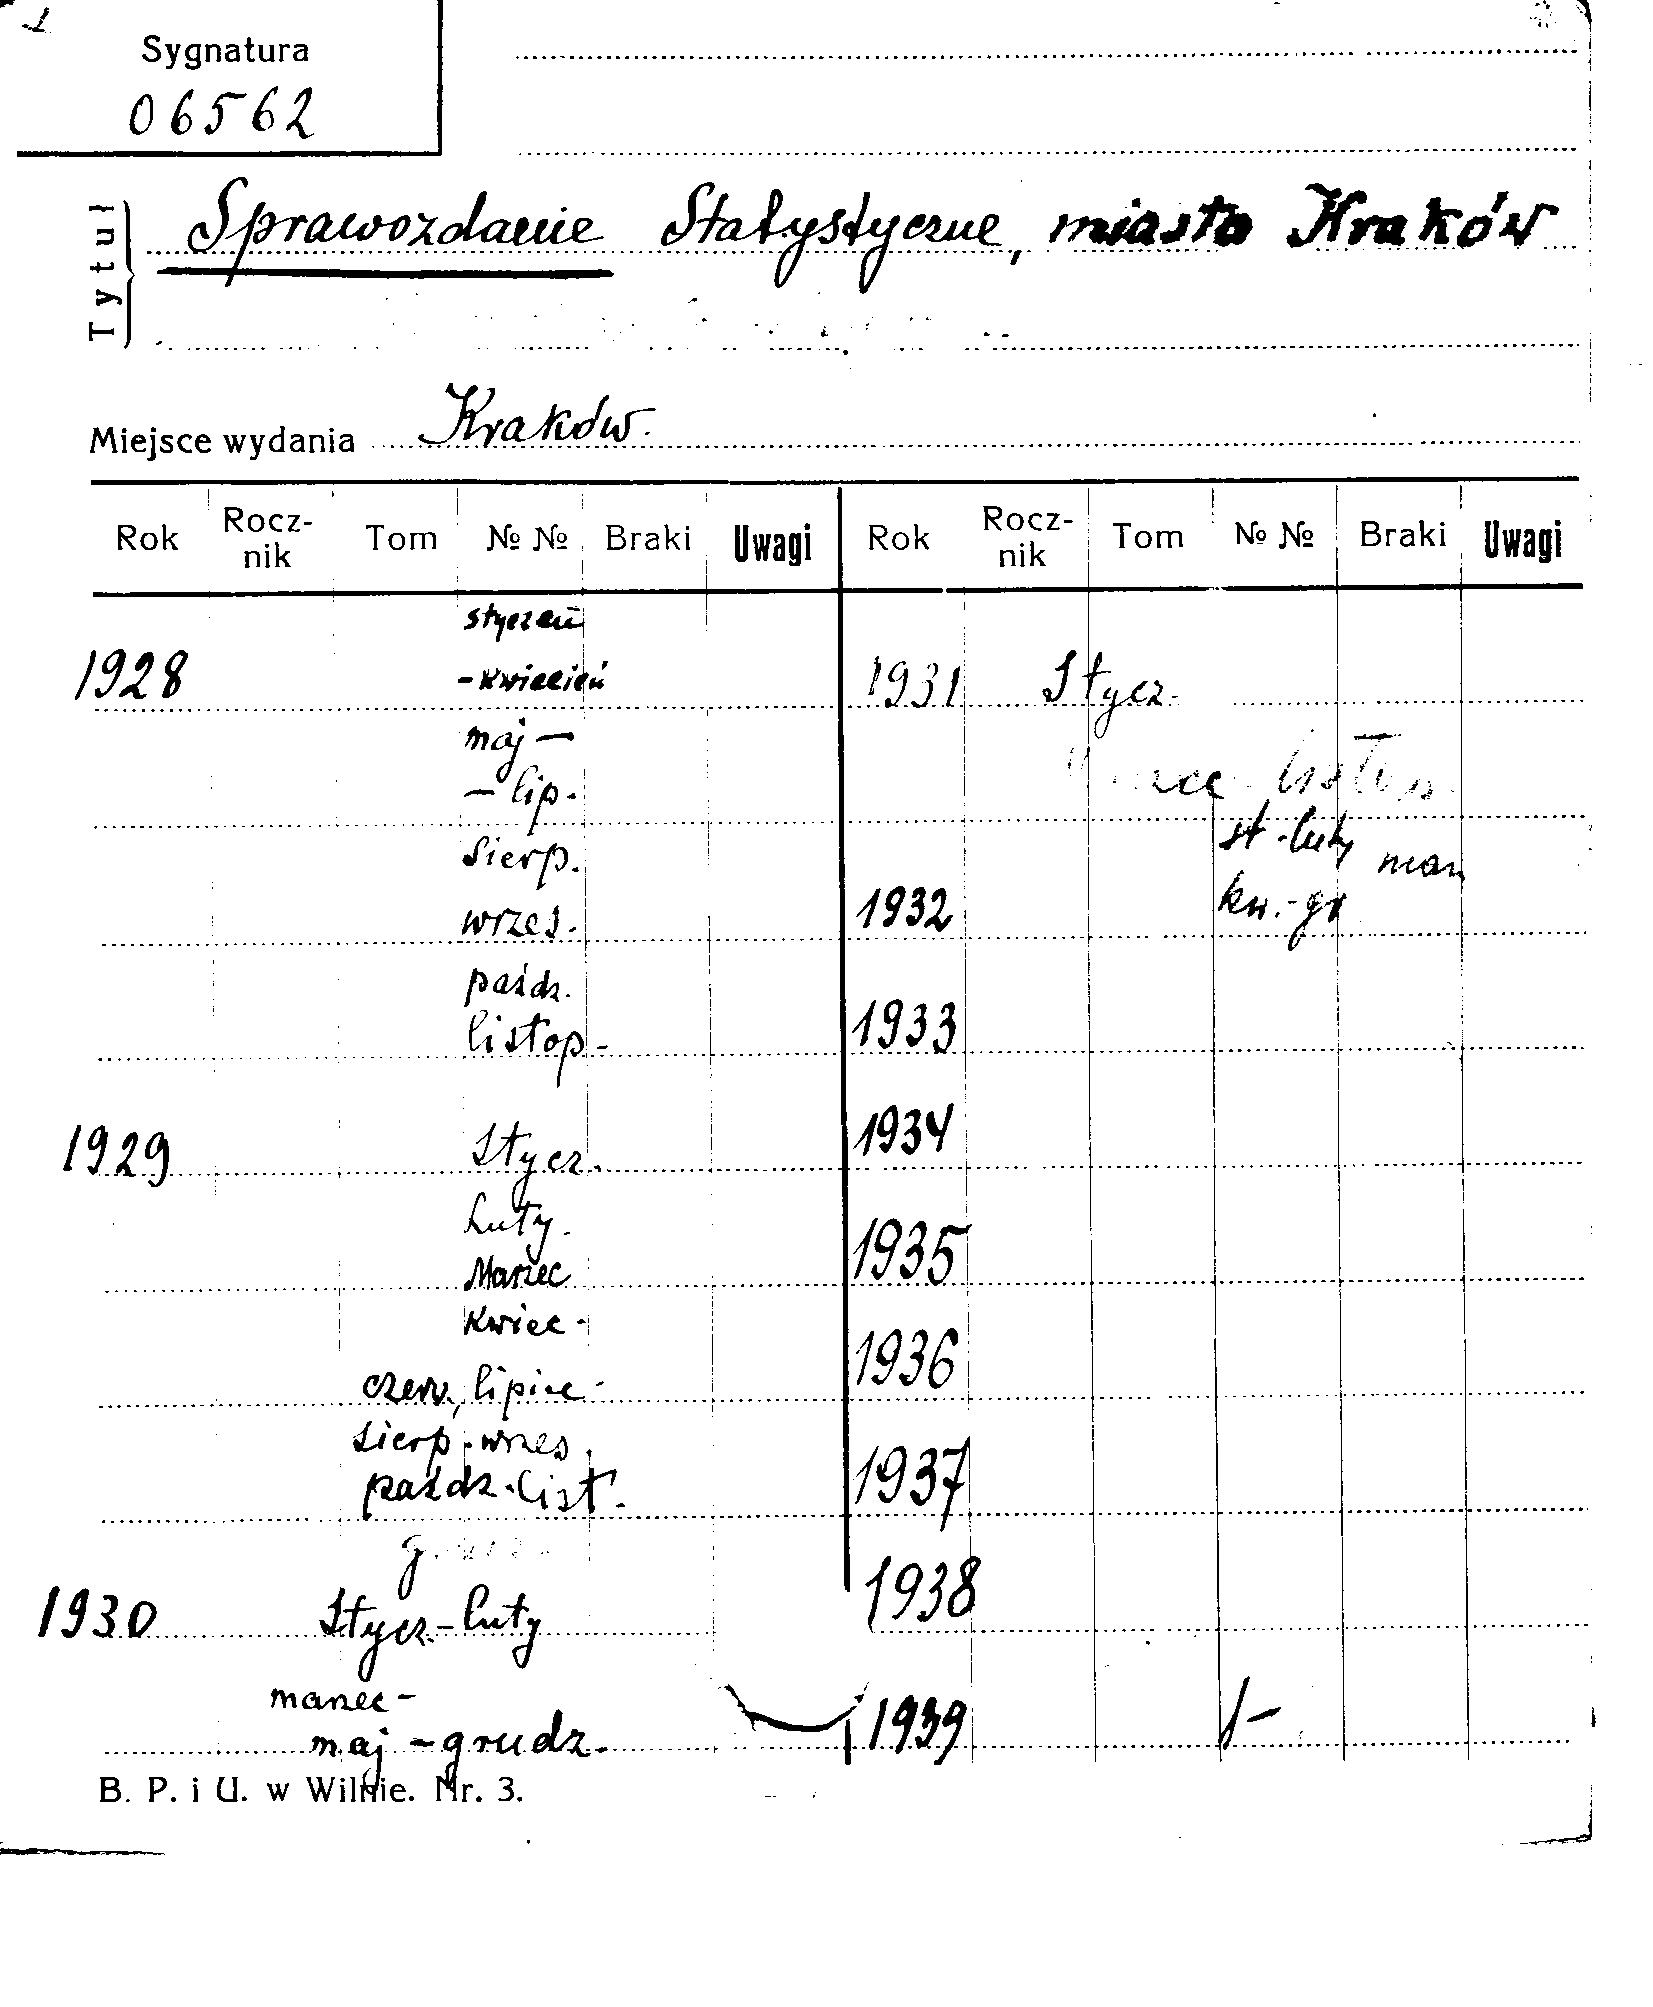 Sygnatura
06562
Tytuł
Sprawozdanie Statystyczne, miasto Kraków
Miejsce wydania Kraków.
Rok Rocz-nik Tom №№ Braki Uwagi Rok Rocz-nik Tom №№ Braki Uwagi
styczeń
1928 -kwiecień
maj —
— lip.
sierp.
wrzes.
paźdz.
listop.
1929 Stycz.
Luty.
Marzec
Kwiec.
czerw., lipiec.
sierp. wrzes.
paźdz. list.
1930 Stycz-luty
marzec-
maj - grudz.
1931 Stycz.
st.-luty
1932 kw.-gr
1933
1934
1935
1936
1937
1938
1939 1-
B. P. i U. w Wilnie. Nr. 3.